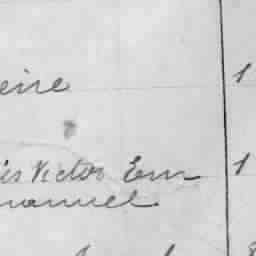 eine 1
is Victor Em 1
manuel